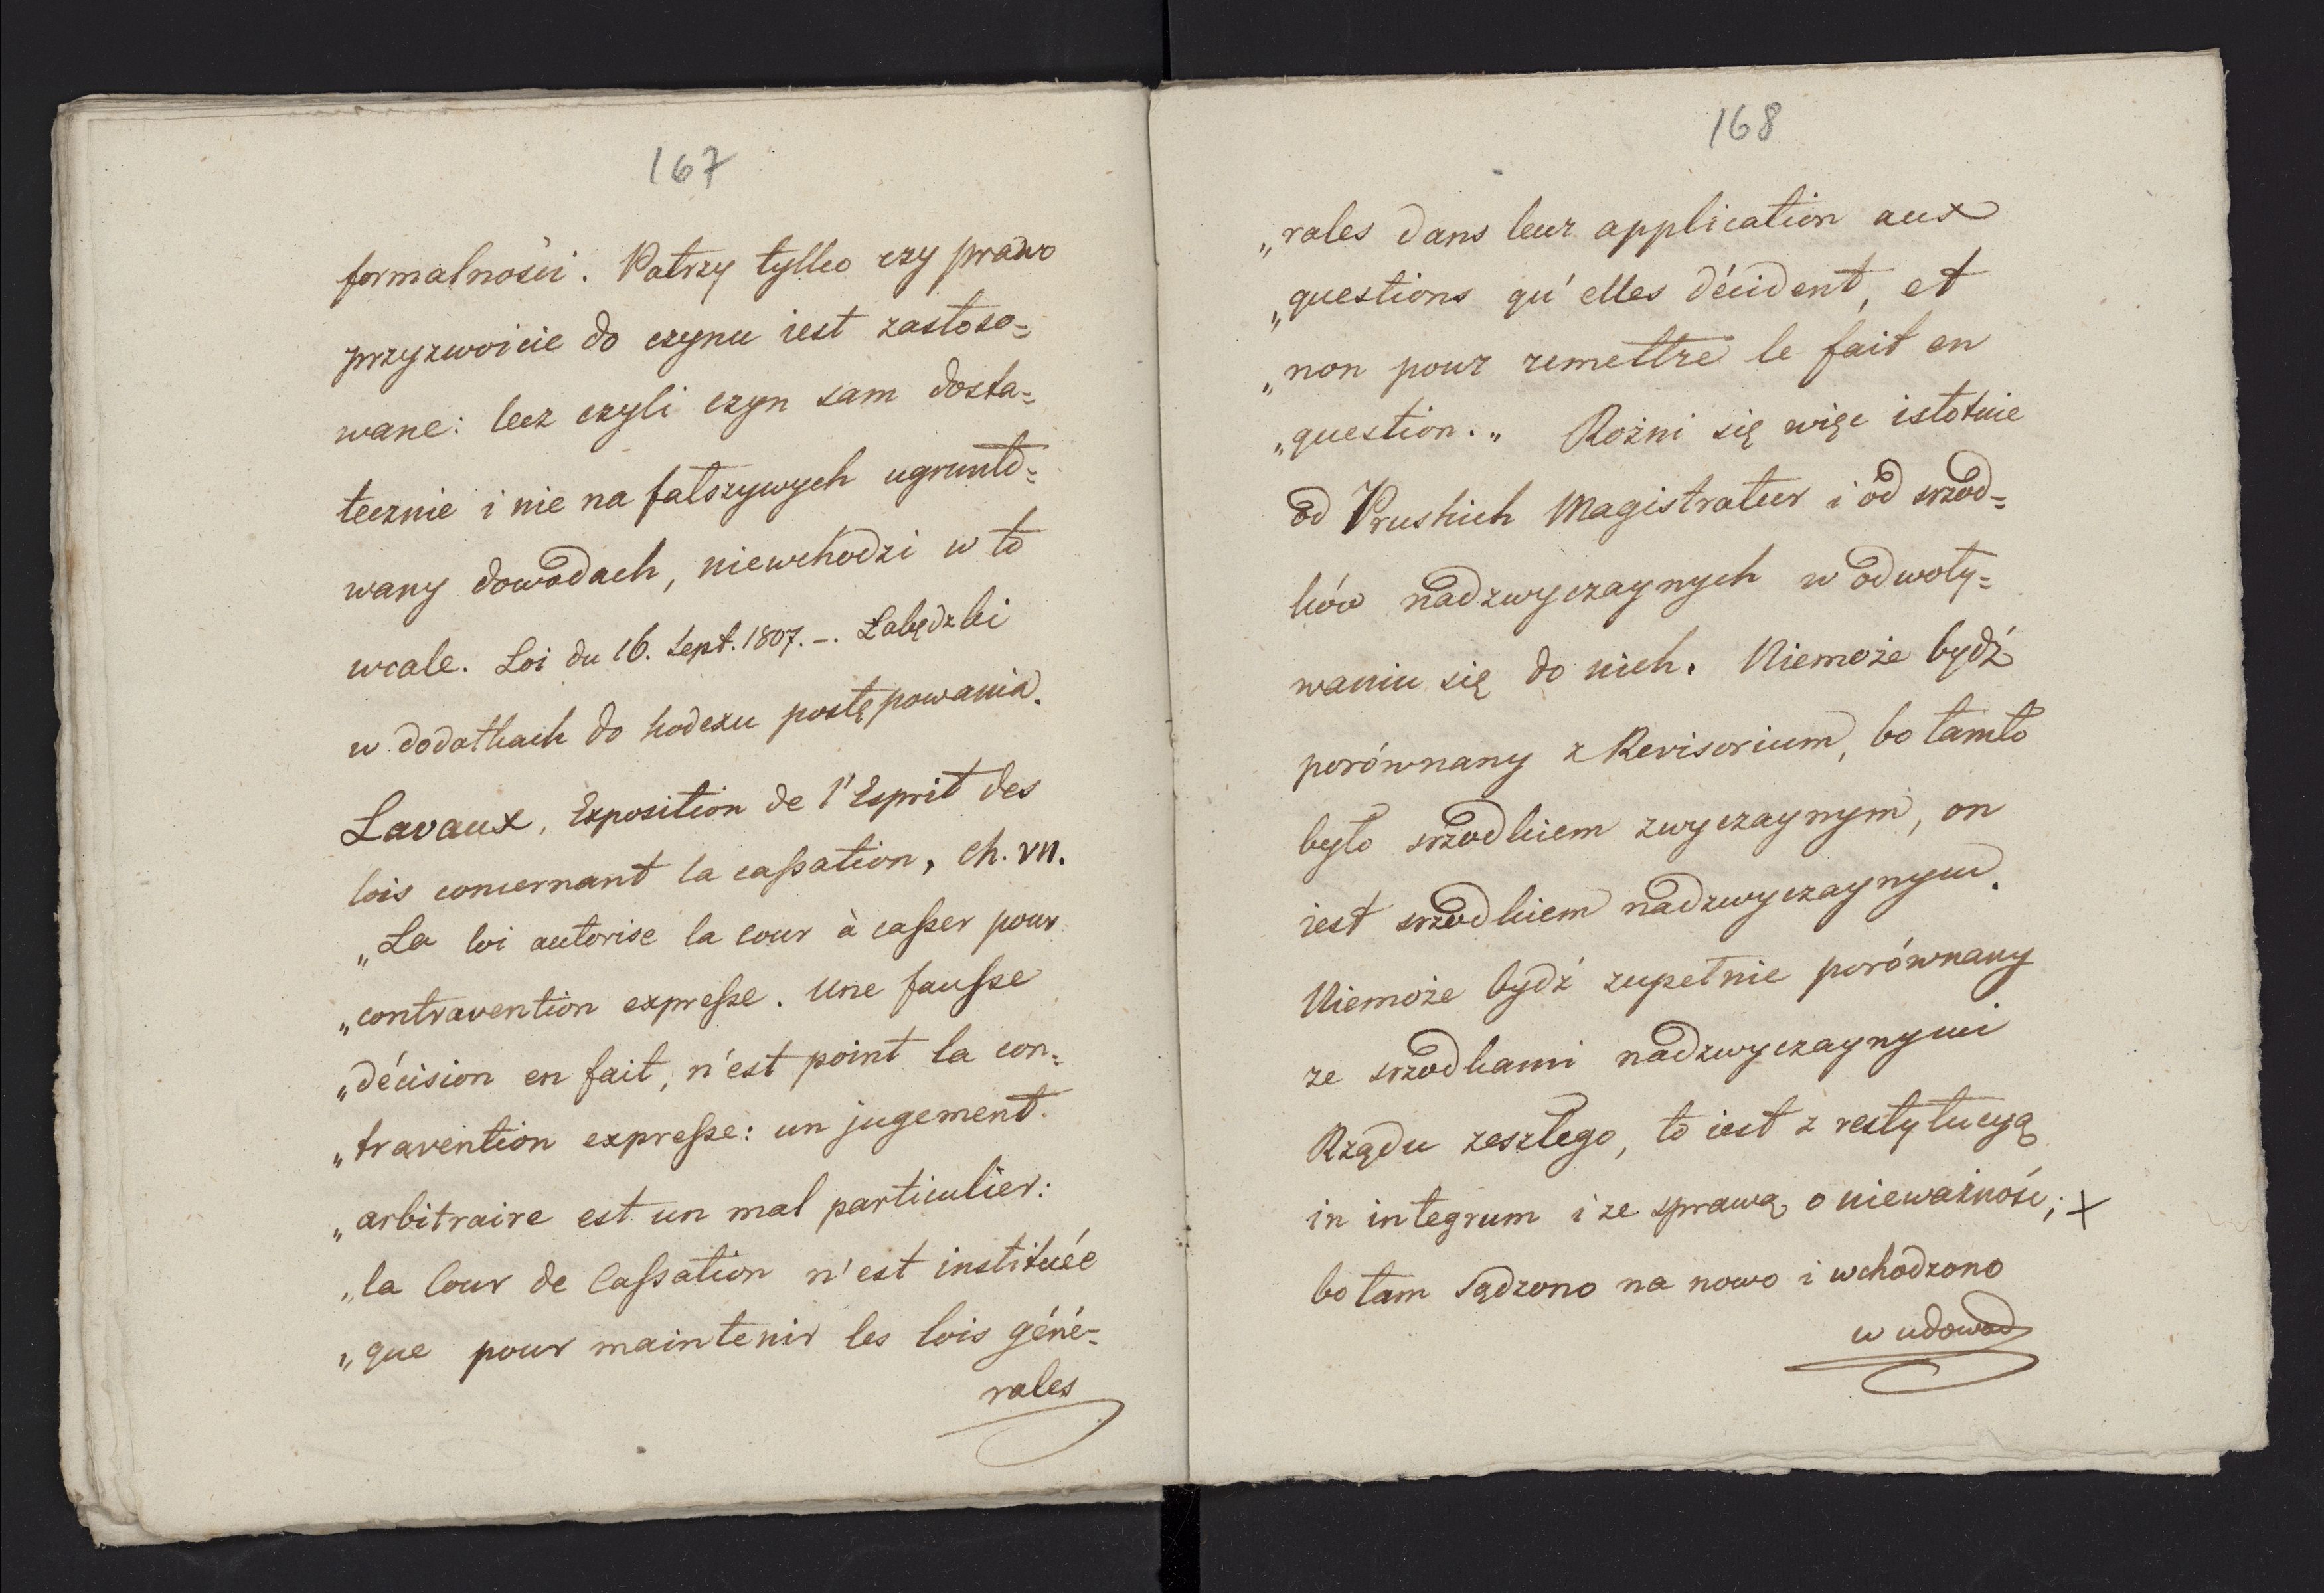 167
formalności. Patrzy tylko czy prawo
przyzwoicie do czynu iest zastoso=
wane: lecz czyli czyn sam dosta=
tecznie i nie na fałszywych ugrunto=
wany dowodach, niewchodzi w to
wcale. Loi du 16. Sept. 1807. –. Łabędzki
w dodatkach do kodexu postępowania.
Lavaux, Exposition de l'Esprit des
lois concernant la caſsation, ch. VII.
„La loi autorise la cour à caſser pour
„contravention expreſse. Une fauſse
„décision en fait, n'est point la con=
„travention expreſse: un jugement
„arbitraire est un mal particulier:
„la Cour de Caſsation n'est instituée
„que pour maintenir les lois géné=
rales
168
„rales dans leur application aux
„questions qu'elles décident, et
„non pour remettre le fait en
„question.„ Rożni się więc istotnie
od Pruskich Magistratur i od srzod=
ków nadzwyczaynych w odwoły=
waniu się do nich. Niemoże bydź
porównany z Revisorium, bo tamto
było srzodkiem zwyczaynym, on
iest srzodkiem nadzwyczaynym.
Niemoże bydź zupełnie porównany
ze srzodkami nadzwyczaynymi
Rządu zeszłego, to iest z restytucyą
in integrum i ze sprawą o nieważność; +
bo tam sądzono na nowo i wchodzono
w udowod